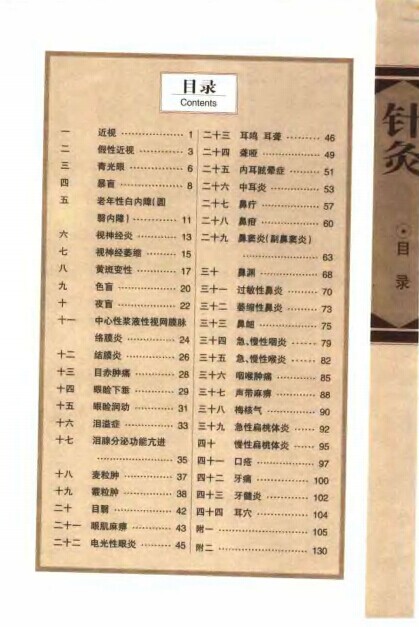 目录
Contents
一 近视 ………………… 1
二 假性近视 ………… 3
三 青光眼 …………… 6
四 暴盲 ……………… 8
五 老年性白内障(圆
翳内障) ………… 11
六 视神经炎 ………… 13
七 视神经萎缩 ……… 15
八 黄斑变性 ………… 17
九 色盲 ……………… 20
十 夜盲 ……………… 22
十一 中心性浆液性视网膜脉
络膜炎 ………… 24
十二 结膜炎 ………… 26
十三 目赤肿痛 ……… 28
十四 眼睑下垂 ……… 29
十五 眼睑润动 ……… 31
十六 泪溢症 ………… 33
十七 泪腺分泌功能亢进
………………… 35
十八 麦粒肿 ………… 37
十九 霰粒肿 ………… 38
二十 目翳 …………… 42
二十一 眼肌麻痹 …… 43
二十二 电光性眼炎 … 45
二十三 耳鸣 耳聋 …… 46
二十四 聋哑 ………… 49
二十五 内耳眩晕症 … 51
二十六 中耳炎 ……… 53
二十七 鼻疔 ………… 57
二十八 鼻疳 ………… 60
二十九 鼻窦炎(副鼻窦炎)
………………… 63
三十 鼻渊 …………… 68
三十一 过敏性鼻炎 … 70
三十二 萎缩性鼻炎 … 73
三十三 鼻衄 ………… 75
三十四 急、慢性咽炎 … 79
三十五 急、慢性喉炎 … 82
三十六 咽喉肿痛 …… 85
三十七 声带麻痹 …… 88
三十八 梅核气 ……… 90
三十九 急性扁桃体炎 … 92
四十 慢性扁桃体炎 … 95
四十一 口疮 ………… 97
四十二 牙痛 ………… 100
四十三 牙髓炎 ……… 102
四十四 耳穴 ………… 104
附一 ………………… 105
附二 ………………… 130
针灸
目录